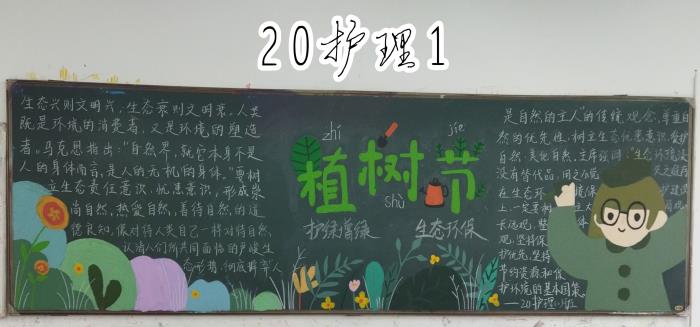 20护理1
生态兴则文明兴，生态衰则文明衰。人类
既是环境的消费者，又是环境的塑造
者。马克思指出："自然界，就它本身不是
人的身体而言，是人的无机的身体。"要树
立生态责任意识、忧患意识，形成崇
尚自然，热爱自然，善待自然的道
德良知，像对待人类自己一样对待自然，
认清人们所共同面临的严峻生
态形势，彻底
zhí
jié
植树节
shù
护绿增绿
生态环保
是自然的主人"的传统观念，尊重自
然的优先性，树立生态忧患意识，爱护
自然、美他自然。
没有替代品，用之
在生态环
上，一定要
长远观，坚
观，坚持保
护优先，坚持
节约资源和保
护环境的基本国策。
——20护理